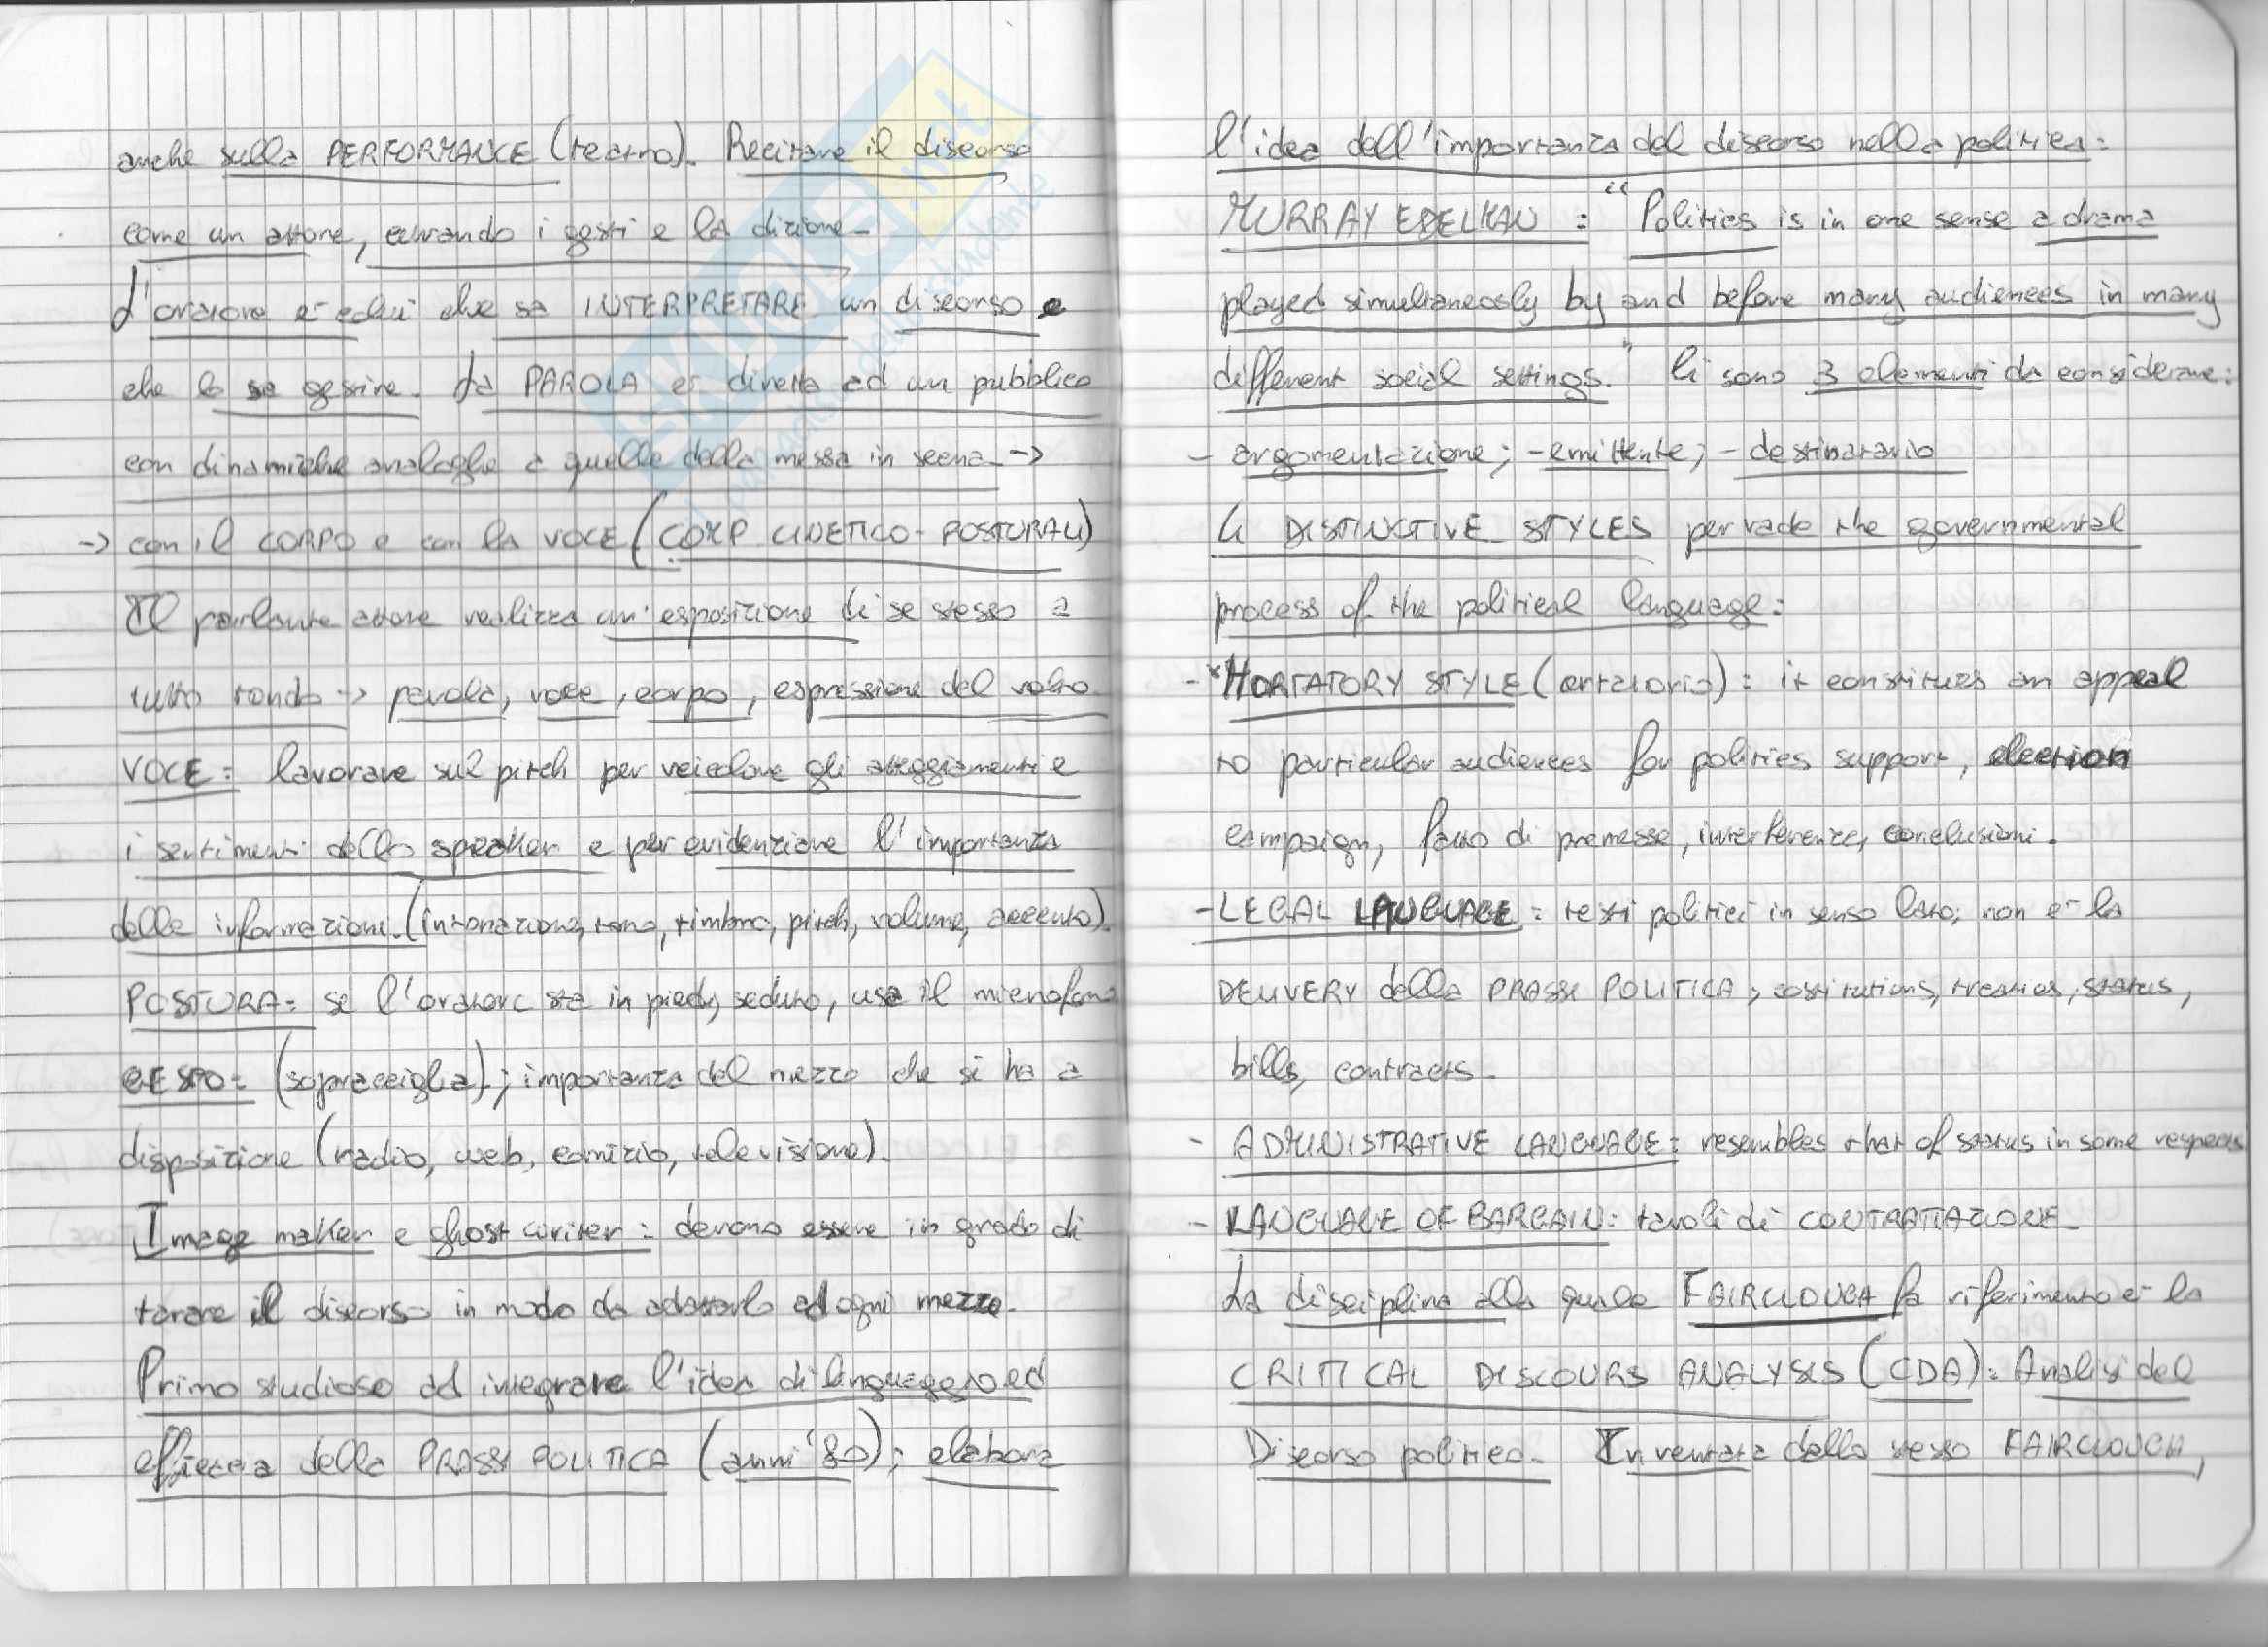 anche sulla PERFORMANCE (teatro). Recitare il discorso
come un attore, curando i gesti e la dizione.
L'oratore è colui che sa INTERPRETARE un discorso e
che lo sa gestire. La PAROLA è diretta ad un pubblico
con dinamiche analoghe a quelle della messa in scena ->
-> con il CORPO e con la VOCE (COMP. CINETICO-POSTURALI)
Il parlante attore realizza un'esposizione di se stesso a
tutto tondo -> parola, voce, corpo, espressione del volto
VOCE: lavorare sul pitch per veicolare gli atteggiamenti e
i sentimenti dello speaker e per evidenziare l'importanza
delle informazioni. (intonazione, tono, timbro, pitch, volume, accento).
POSTURA: se l'oratore sta in piedi, seduto, usa il microfono
GESTO: (sopracciglia); importanza del mezzo che si ha a
disposizione (radio, web, comizio, televisione).
Image maker e ghost writer: devono essere in grado di
tarare il discorso in modo da adattarlo ad ogni mezzo.
Primo studioso ad integrare l'idea di linguaggio ed
efficacia della PRASSI POLITICA (anni '80); elabora
l'idea dell'importanza del discorso nella politica:
MURRAY EDELMAN: "Politics is in one sense a drama
played simultaneosly by and before many audiences in many
different social settings." Ci sono 3 elementi da considerare:
- argomentazione; - emittente; - destinatario
4 DISTINCTIVE STYLES pervade the governmental
process of the political language:
- *HORTATORY STYLE (oratorio): it constitues an appeal
to particular audiences for politics support, election
campaign, fatto di premesse, interferenze, conclusioni.
- LEGAL LANGUAGE: testi politici in senso lato; non è la
DELIVERY della PRASSI POLITICA; costitutions, treaties, status,
bills, contracts.
- ADMINISTRATIVE LANGUAGE: resembles that of status in some respects
- LANGUAGE OF BARGAIN: tavoli di CONTRATTAZIONE
La disciplina alla quale FAIRCLOUGH fa riferimento è la
CRITICAL DISCOURS ANALYSIS (CDA): Analisi del
Discorso politico. Inventata dallo stesso FAIRCLOUGH,